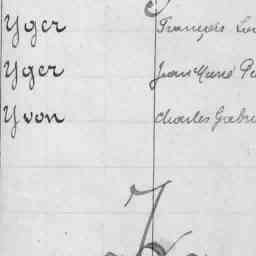 Yger François
Yger Jean Marie
Yvon Charles
Z